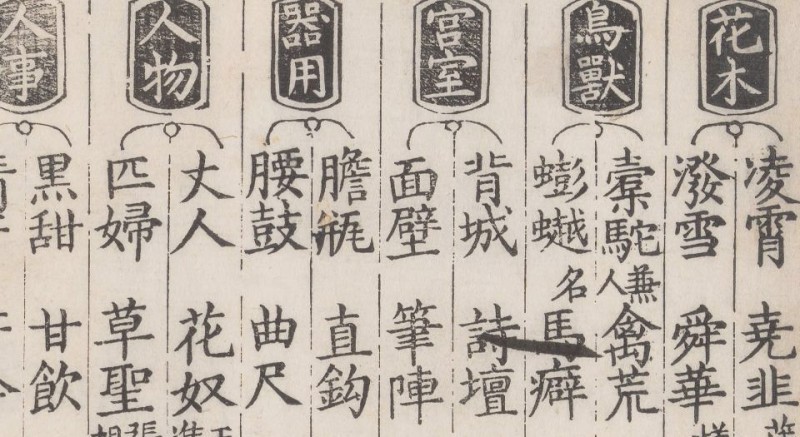 花木
凌霄 堯韭
潑雪 舜華
鳥獸
橐駝 兼人 禽荒
蟛蟚 名 馬癖
宮室
背城 詩壇
面壁 筆陣
器用
膽瓶 直鈎
腰鼓 曲尺
人物
丈人 花奴
匹婦 草聖
人事
黒甜 甘飲